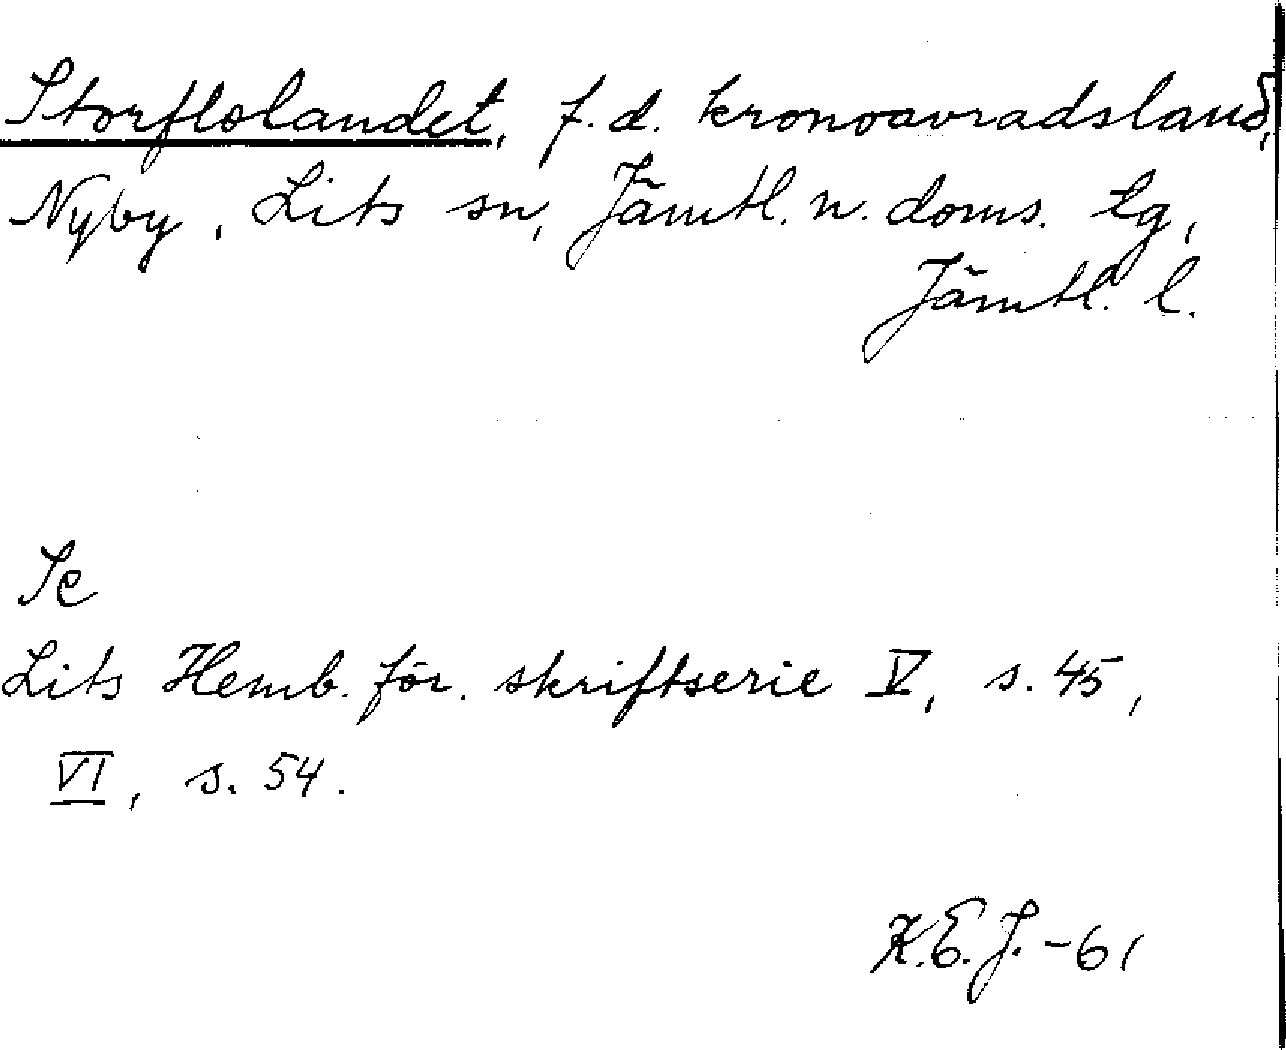 Storflolandet, f.d. kronoavradsland,
Nyby, Lits sn, Jämtl. n. doms. tg,
Jämtl. l.
Se
Lits Hemb. för. skriftserie V, s. 45,
VI, s. 54.
K.E.J. -61